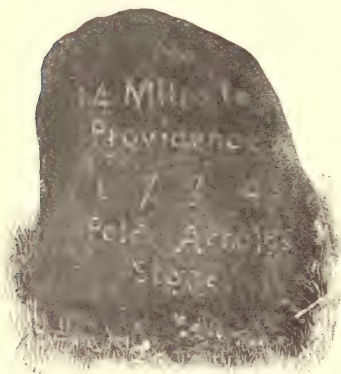 14 Miles to
Providence
1 7 7 4
Pele Arnolds
Stone